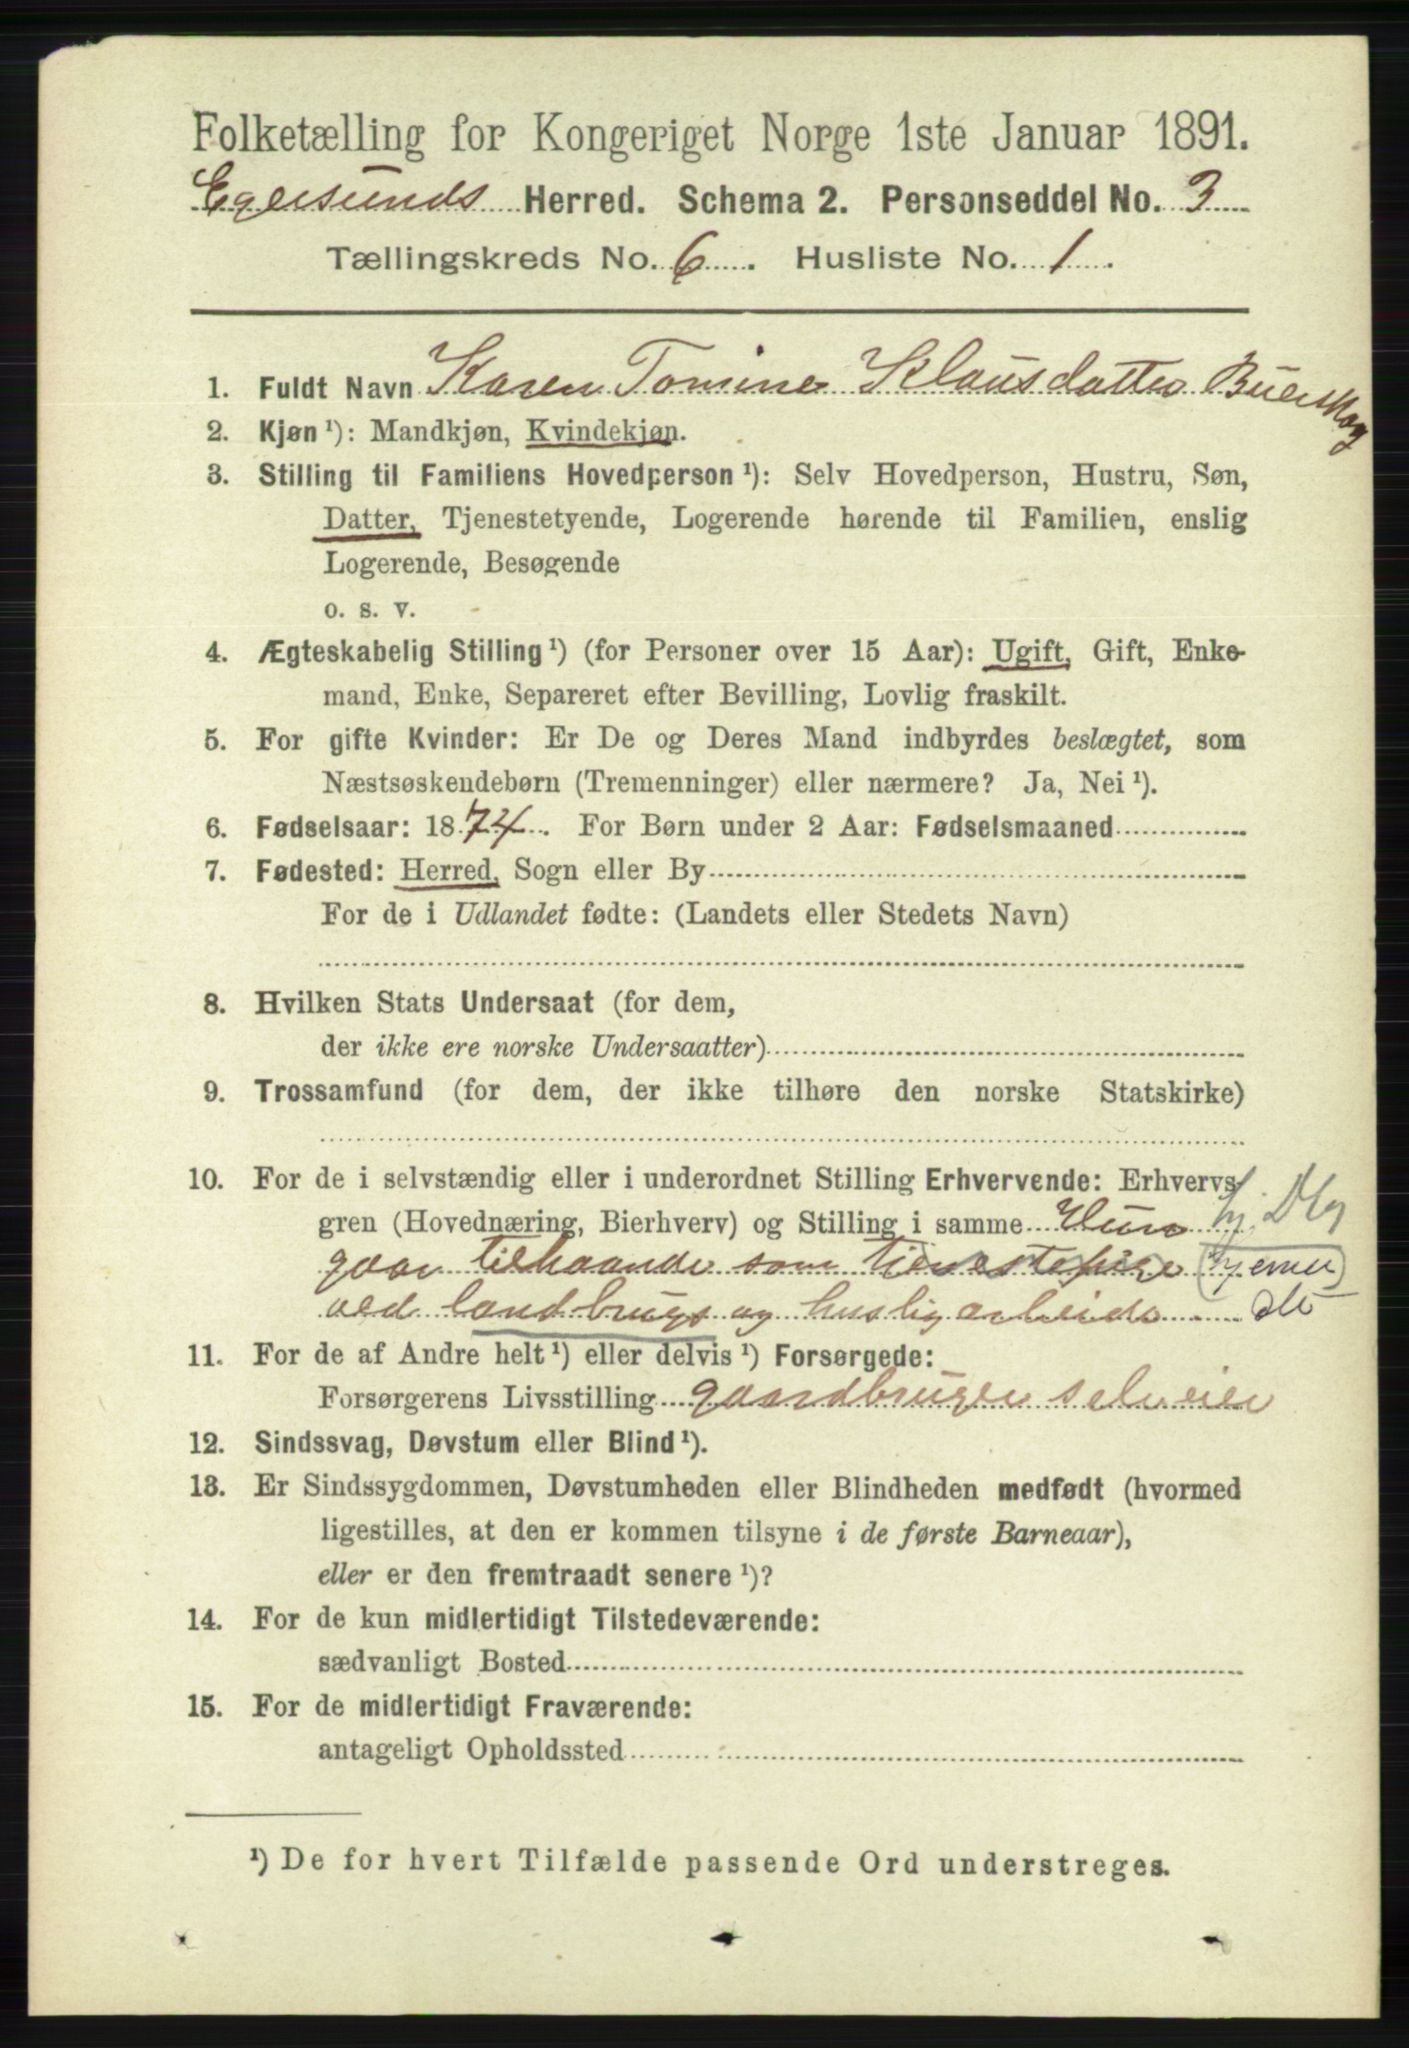 Folketælling for Kongeriget Norge 1ste Januar 1891.
Egersunds Herred. Schema 2. Personseddel No. 3
Tællingskreds No. 6. Husliste No. 1.
1. Fuldt Navn Karen Tomine Klausdatter Buerskog
2. Kjøn ¹): Mandkjøn, Kvindekjøn.
3. Stilling til Familiens Hovedperson ¹): Selv Hovedperson, Hustru, Søn,
Datter, Tjenestetyende, Logerende hørende til Familien, enslig
Logerende, Besøgende
o. s. v.
4. Ægteskabelig Stilling ¹) (for Personer over 15 Aar): Ugift, Gift, Enke-
mand, Enke, Separeret efter Bevilling, Lovlig fraskilt.
5. For gifte Kvinder: Er De og Deres Mand indbyrdes beslægtet, som
Næstsøskendebørn (Tremenninger) eller nærmere? Ja, Nei ¹).
6. Fødselsaar: 1874. For Børn under 2 Aar: Fødselsmaaned
7. Fødested: Herred, Sogn eller By
For de i Udlandet fødte: (Landets eller Stedets Navn)
8. Hvilken Stats Undersaat (for dem,
der ikke ere norske Undersaatter)
9. Trossamfund (for dem, der ikke tilhøre den norske Statskirke)
10. For de i selvstændig eller i underordnet Stilling Erhvervende: Erhvervs-
gren (Hovednæring, Bierhverv) og Stilling i samme Hun
gaar tilhaande som tienestepige
ved landbrugs og huslig arbeide
11. For de af Andre helt ¹) eller delvis ¹) Forsørgede:
Forsørgerens Livsstilling gaardbruger selveier
12. Sindssvag, Døvstum eller Blind ¹).
13. Er Sindssygdommen, Døvstumheden eller Blindheden medfødt (hvormed
ligestilles, at den er kommen tilsyne i de første Barneaar),
eller er den fremtraadt senere ¹)?
14. For de kun midlertidigt Tilstedeværende:
sædvanligt Bosted
15. For de midlertidigt Fraværende:
antageligt Opholdssted
¹) De for hvert Tilfælde passende Ord understreges.